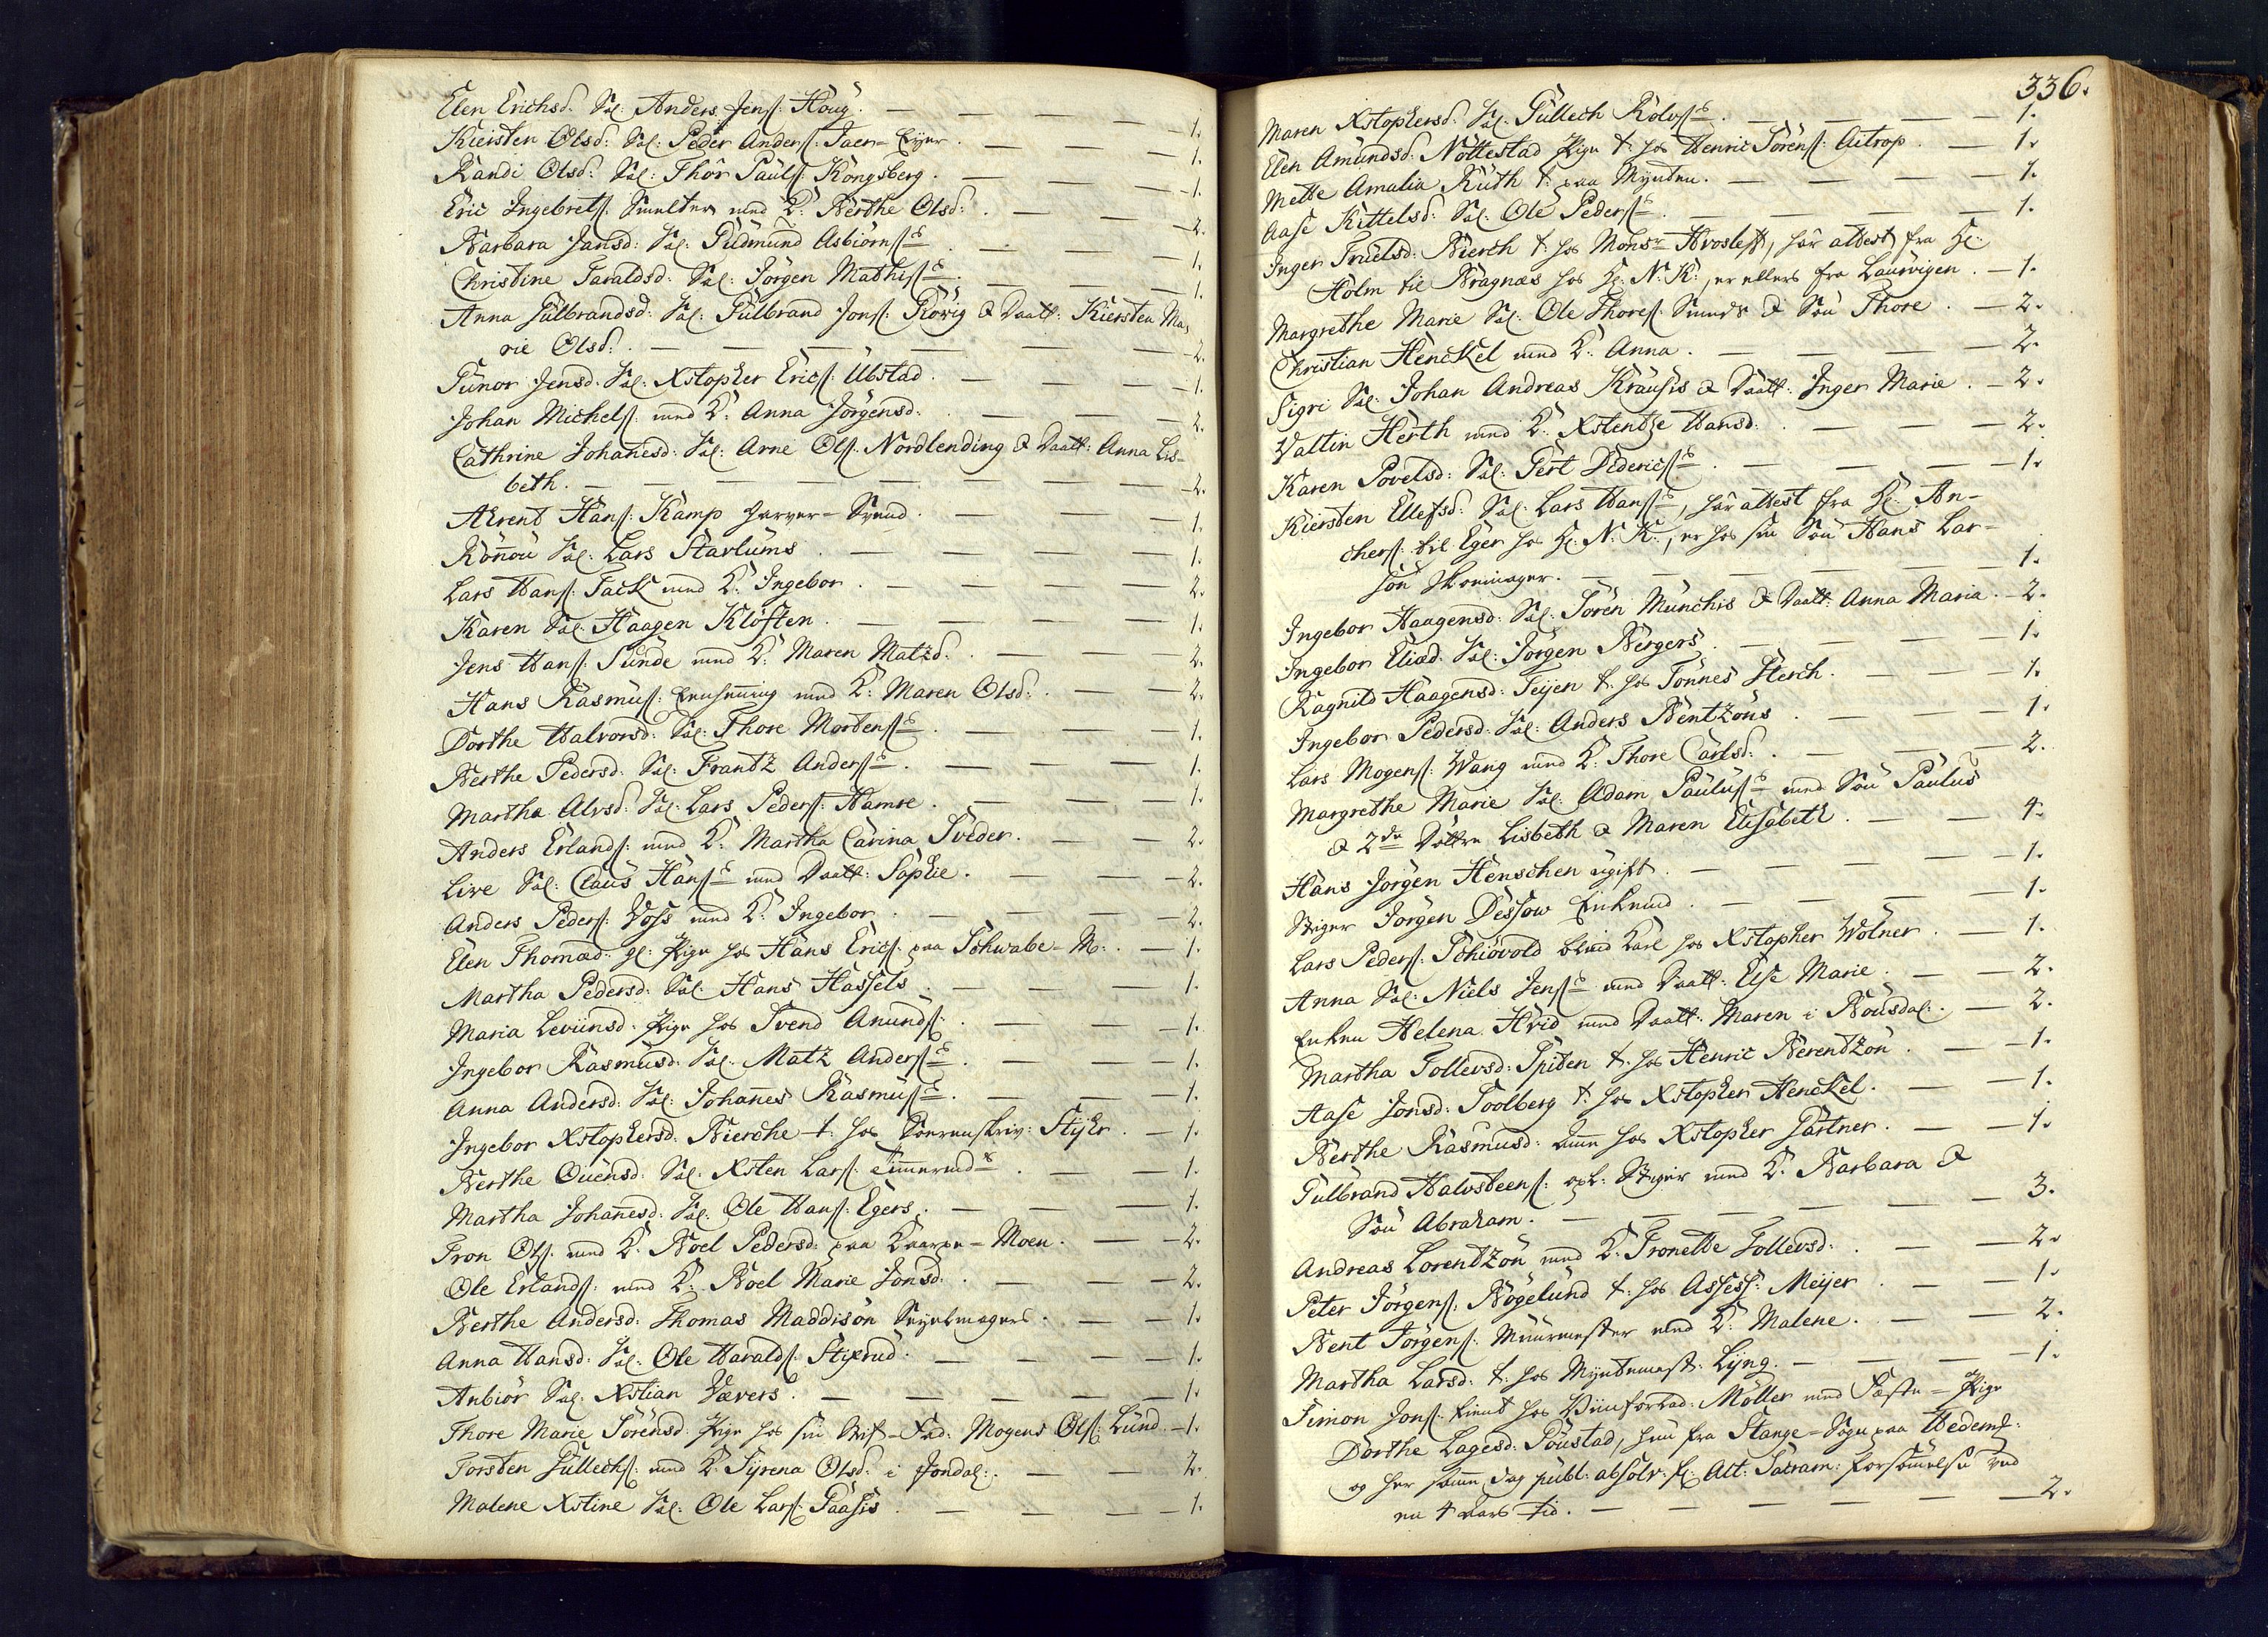 Elen Erichsd. Sal: Anders Jens: Houg. — 1.
Kiersten Olsd: Sal: Peder Anders: Saer-Eyer. — 1.
Randi Olsd: Sal: Thor Pauls: Kongsberg. — 1.
Eric Ingebrets: Smelter med K: Berthe Olsd: — 2.
Barbara Jansd: Sal: Gudmund Asbiörns: — 1.
Christine Taraldsd: Sal: Jörgen Mathis: — 1.
Anna Gulbrandsd: Sal: Gulbrand Jons: Rövig & Datt: Kiersten Ma-
rie Olsd: — 2.
Gunor Jensd: Sal: Xstopher Erics: Ubstad. — 1.
Johan Michels: med K: Anna Jörgensd: — 2.
Cathrine Johanesd: Sal: Arne Ols: Nordlending & Datt: Anna Lis-
beth. — 2.
Ahrent Hans: Kamp Garver-Svend. — 1.
Rönnou Sal: Lars Starlums — 1.
Lars Hans: Tack med K: Ingebor. — 2.
Karen Sal: Haagen Klöften. — 1.
Jens Hans: Sunde med K: Maren Matzd. — 2.
Hans Rasmus: med K: Maren Olsd: — 2.
Dorthe Halvorsd: Sal: Thore Mortens: — 1.
Berthe Pedersd: Sal: Frantz Anders: — 1.
Martha Alvsd: Sal: Lars Peders: Hamre. — 1.
Anders Erlands: med K: Martha Carina Sveder. — 2.
Live Sal: Claus Hans: med Datt: Sophie. — 2.
Anders Peders: Voss med K: Ingebor. — 2.
Elen Thomæd: gl: Pige hos Hans Erics: paa Schwabe-M: — 1.
Martha Pedersd: Sal: Hans Hassels. — 1.
Maria Leviinsd: Pige hos Svend Anunds: — 1.
Ingebor Rasmusd: Sal: Matz Anders: — 1.
Anna Andersd: Sal: Johannes Rasmus: — 1.
Ingebor Xstophersd: Bierche t: hos Soerenskriv: Stijhr. — 1.
Berthe Ouensd: Sal: Xsten Lars: Tømermds — 1.
Martha Johanesd: Sal: Ole Hans: Egers. — 1.
Tron Ols: med K: Boel Pedersd: paa Moen. — 2.
Ole Erlands: med K: Boel Marie Jonsd: — 2.
Berthe Andersd: Thomas Maddison Seyelmagers. — 1.
Anna Hansd: Sal: Ole Haralds: Stixrud. — 1.
Anbiör Sal: Xstian Vævers. — 1.
Thore Marie Sörensd: Pige hos sin Stif-Fad: Mogens Ols: Lund. — 1.
Torsten Gullechs: med K: Syrena Olsd: i Jondal: — 2.
Malene Xstine Sal: Ole Lars: Paasis — 1.
336.
Maren Xstophersd. Sal: Gullech Rolvs: — 1.
Elen Amundsd: Nöttestad Pige t: hos Henric Sörens: Aitrop. — 1.
Mette Amalia Ruth t: paa Mynten. — 1.
Aase Kittelsd: Sal: Ole Peders: — 1.
Inger Truelsd: Bierch t: hos Monsr Hvoslef, har attest fra Hr:
Holm til Bragnæs hos Hr: N: K:, er ellers fra Laurvigen. — 1.
Margrethe Marie Sal: Ole Thores: Smeds & Sön Thore. — 2.
Christian Henckel med K: Anna. — 2.
Sigri Sal: Johan Andreas Krausis & Datt: Inger Marie. — 2.
Valtin Herth med K: Xstentze Hansd: — 2.
Karen Povelsd: Sal: Gert Diderics: — 1.
Kiersten Ellefsd: Sal: Lars Hans:, har attest fra Hr: An-
chers: til Eger hos Hr: N: K:, er hos sin Sön Hans Lar-
sön Skoemager. — 1.
Ingebor Haagensd: Sal: Sören Munchis & Datt: Anna Maria. — 2.
Ingebor Eliæd: Sal: Jörgen Bergers. — 1.
Ragnild Haagensd: Teijen t: hos Tönnes Sterch. — 1.
Ingebor Pedersd: Sal: Anders Bentzöns. — 1.
Lars Mogens: Wang med K: Thore Carlsd: — 2.
Margrethe Marie Sal: Adam Paulus: med Sön Paulus
& 2de Döttre Lisbeth & Maren Elisabeth. — 4.
Hans Jörgen Henschen ugift. — 1.
Stiger Jörgen Dessow Enkemd. — 1.
Lars Peders: Schiövold blind Karl hos Xstopher Wölner. — 1.
Anna Sal: Niels Jens: med Datt: Else Marie. — 2.
Enken Helena Hvid med Datt: Maren i Housdal: — 2.
Martha Tollevsd: Spiten t: hos Henric Berentzön. — 1.
Aase Jonsd: Soolberg t: hos Xstopher Henckel. — 1.
Berthe Rasmusd: Amme hos Xstopher Gärtner. — 1.
Gulbrand Halvsteens: opl: Stiger med K: Barbara &
Sön Abraham. — 3.
Andreas Lorentzön med K: Tronette Tollevsd: — 2.
Peter Jörgens: Bögelund t: hos Assess: Meijer. — 1.
Bent Jörgens: Muurmester med K: Malene. — 2.
Martha Larsd: t: hos Myntemest: Lyng. — 1.
Simon Jons: tient hos Viinforlad: Möller med Fæste-Pige
Dorthe Lagesd: Soustad, hun fra Stange-Sogn paa Hedem:
og her samme Dag publ: absolv: fr: Alt: Sacram: Forsömelse ved
en 4 Aars Tid. — 2.